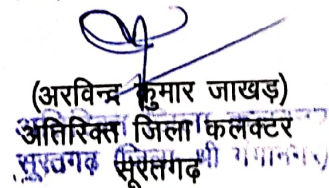 (अरविन्द्र कुमार जाखड़)
अतिरिक्त जिला कलक्टर
सूरतगढ़